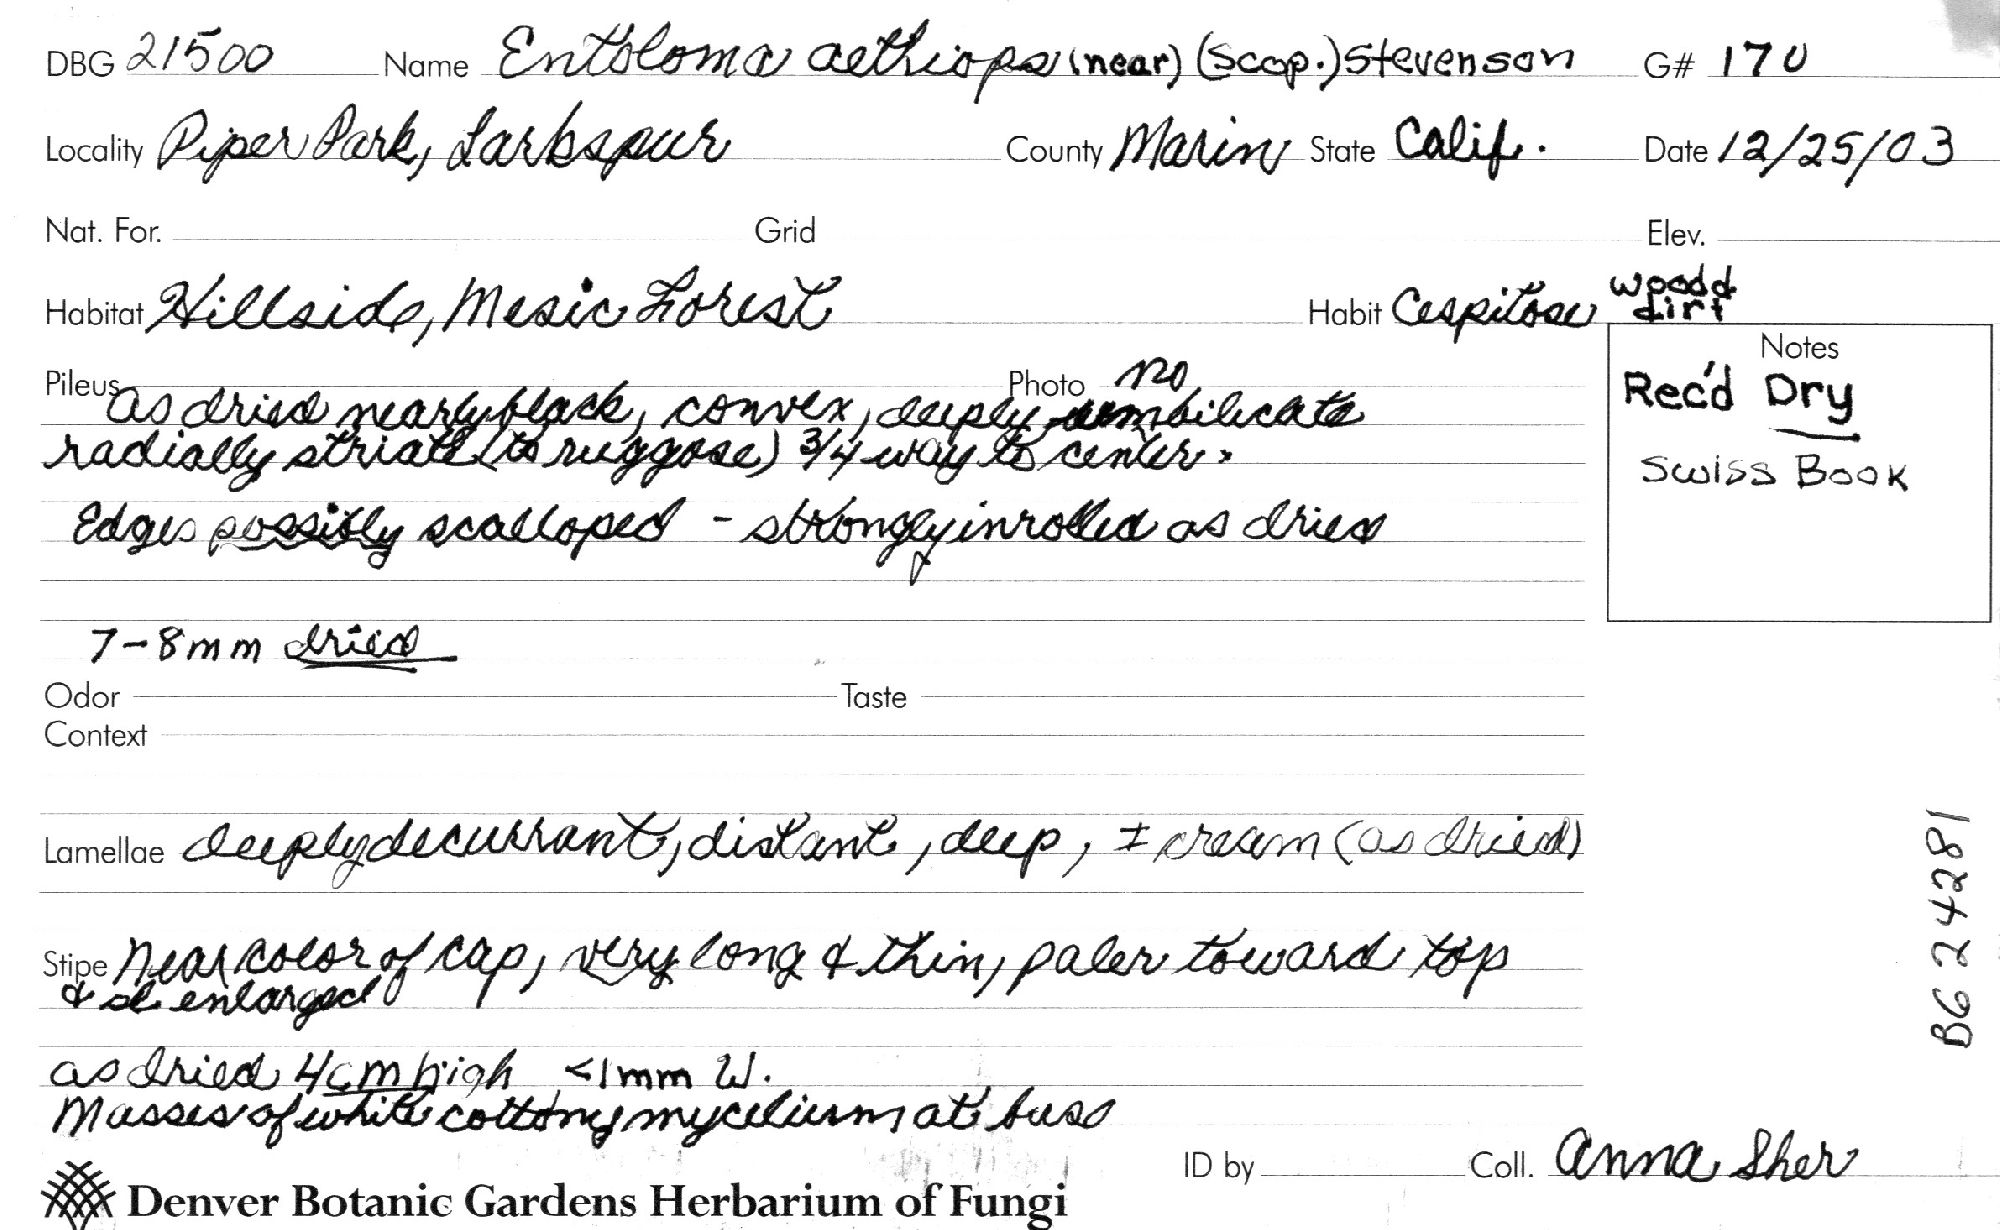 DBG 21500 Name Entoloma aethiops (near) (Scop.) Stevenson G# 170
Locality Piper Park, Larkspur County Marin State Calif. Date 12/25/03
Nat. For. Grid Elev.
Habitat Hillside, Mesic Forest Habit Cespitose woodd dirt
Notes
Rec'd Dry
Swiss Book
Pileus Photo no
as dried nearly black, convex, deeply umbilicate
radially striate (to ruggose) 3/4 way to center.
Edges possibly scalloped - strongly inrolled as dried
7-8mm dried
Odor Taste
Context
Lamellae deeply decurrant, distant, deep, ± cream (as dried)
Stipe Near color of cap, very long & thin, paler toward top
& sl enlarged
as dried 4cm high <1mm W.
Masses of white cottony mycelium at base
ID by Coll. Anna Sher
Denver Botanic Gardens Herbarium of Fungi
BG 24281